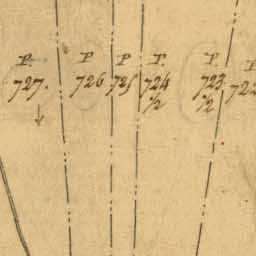 P. P P P. P. P
727. 726 725 724 723 722
½ ½